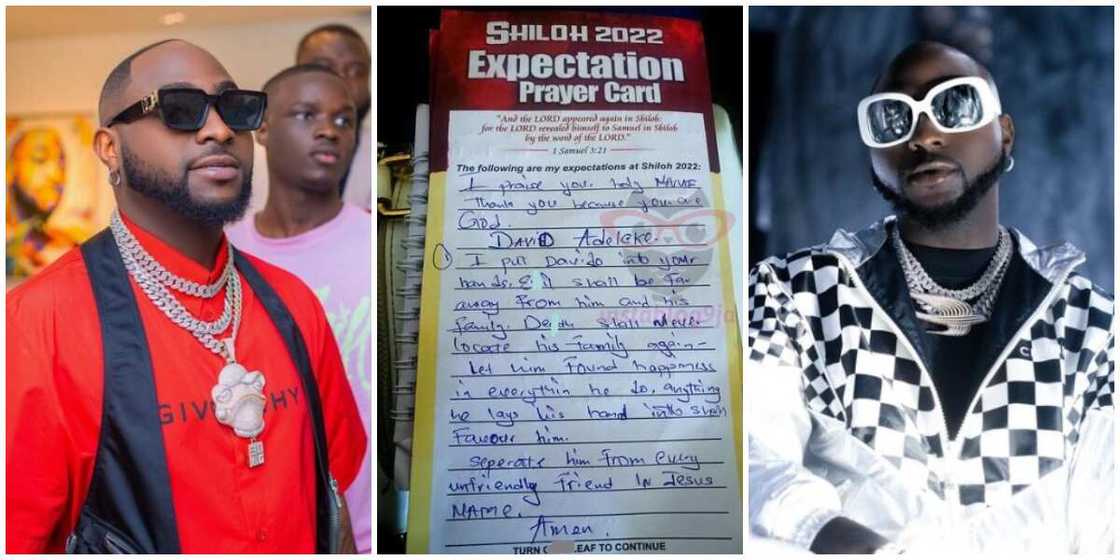 GIVENCHY
SHILOH 2022
Expectation
Prayer Card
"And the LORD appeared again in Shiloh:
for the LORD revealed himself to Samuel in Shiloh
by the word of the LORD."
1 Samuel 3:21
The following are my expectations at Shiloh 2022:
I praise your holy NAME
Thank you because you are
God.
DAVID Adeleke.
① I put Davido into your
hands. Evil shall be far
away From him and his
family. Death shall never
locate his family again-
Let him Found happiness
in everything he do. anything
he lays his hand into shall
Favour him.
seperate him From every
unfriendly friend In Jesus
NAME.
Amen.
TURN LEAF TO CONTINUE